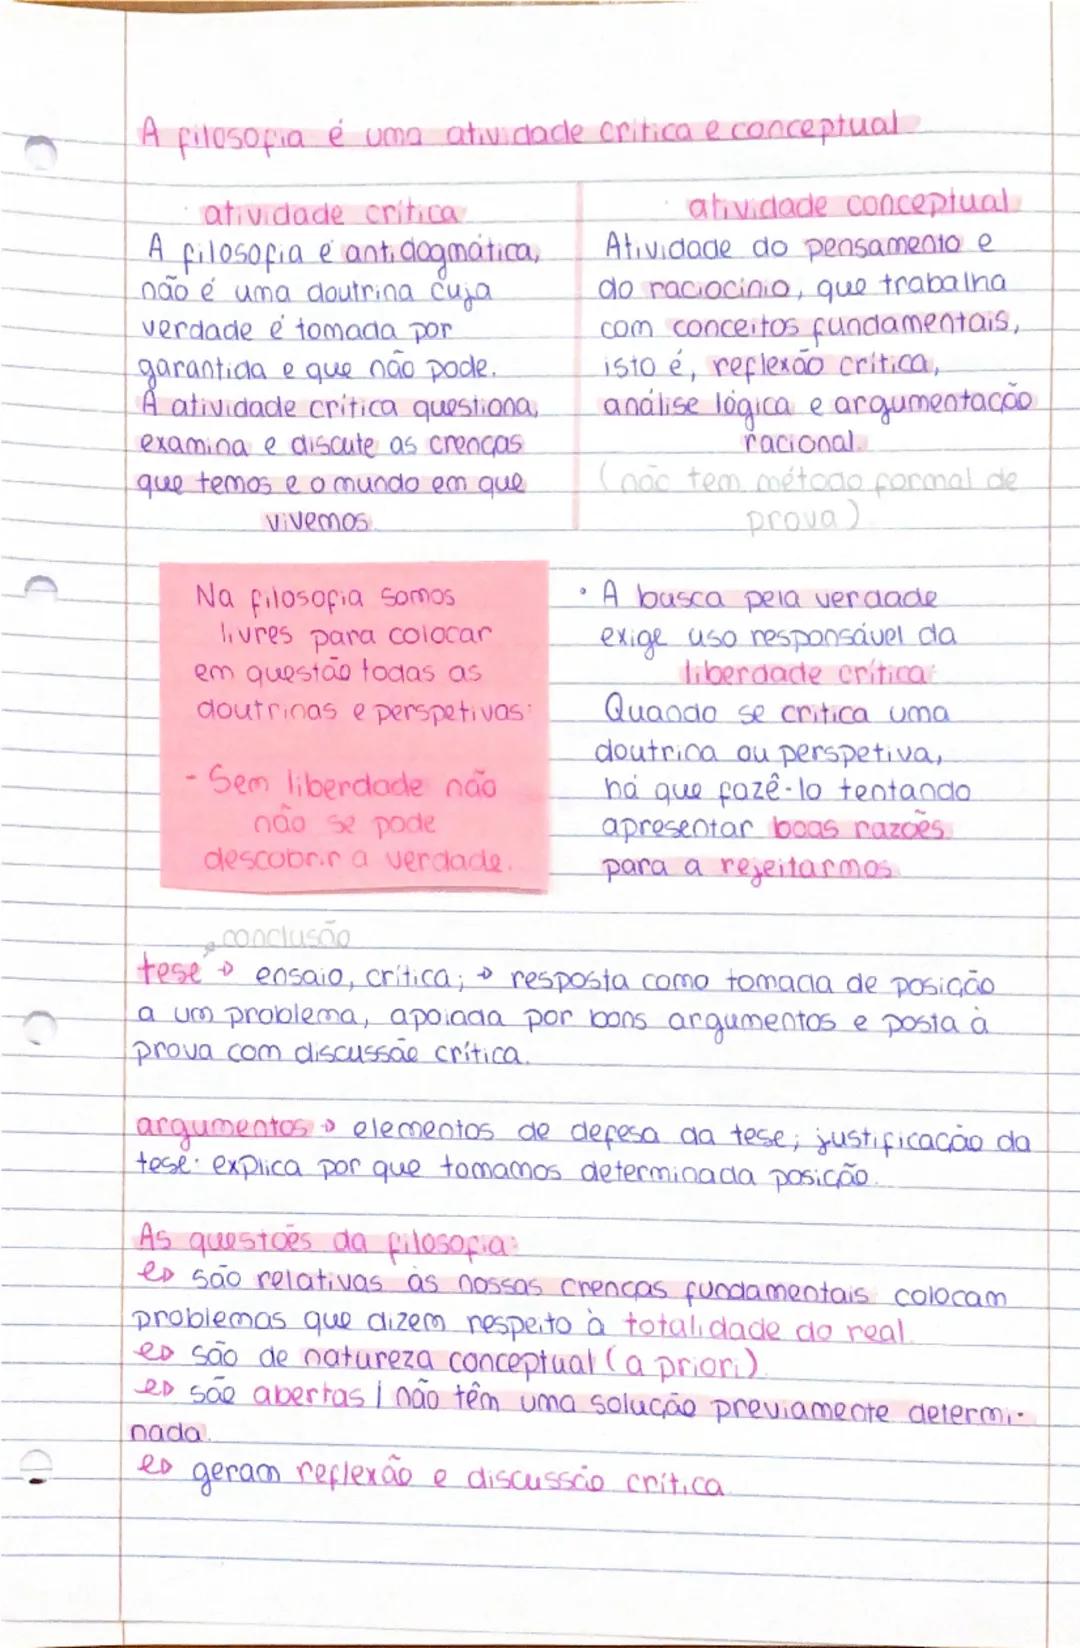 A filosofia é uma atividade crítica e conceptual
atividade crítica
A filosofia é antidogmática,
não é uma doutrina cuja
verdade é tomada por
garantida e que não pode.
A atividade crítica questiona,
examina e discute as crenças
que temos e o mundo em que
vivemos.
atividade conceptual
Atividade do pensamento e
do raciocínio, que trabalha
com conceitos fundamentais,
isto é, reflexão crítica,
análise lógica e argumentação
racional.
(não tem método formal de
prova)
Na filosofia somos
livres para colocar
em questão todas as
doutrinas e perspetivas:
- Sem liberdade não
não se pode
descobrir a verdade.
• A busca pela verdade
exige uso responsável da
liberdade crítica:
Quando se critica uma
doutrina ou perspetiva,
há que fazê-lo tentando
apresentar boas razões
para a rejeitarmos.
conclusão
tese → ensaio, crítica; → resposta como tomada de posição
a um problema, apoiada por bons argumentos e posta à
prova com discussão crítica.
argumentos → elementos de defesa da tese; justificação da
tese: explica por que tomamos determinada posição.
As questões da filosofia:
↳ são relativas às nossas crenças fundamentais colocam
problemas que dizem respeito à totalidade do real.
↳ são de natureza conceptual (a priori).
↳ são abertas / não têm uma solução previamente determi-
nada.
↳ geram reflexão e discussão crítica.